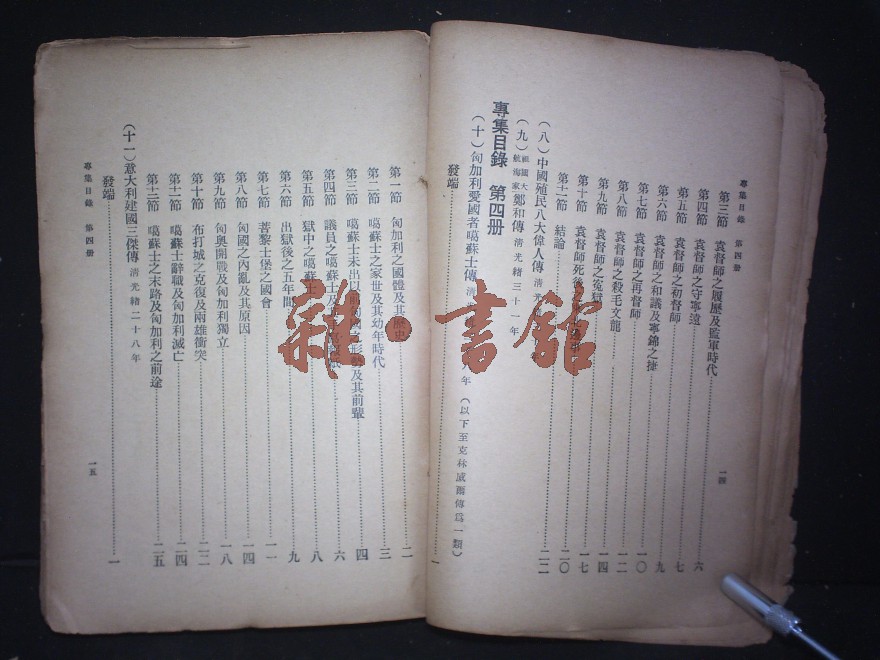 專集目錄 第四冊
一四
第三節 袁督師之履歷及監軍時代 六
第四節 袁督師之守寧遠 七
第五節 袁督師之初督師 九
第六節 袁督師之和議及寧錦之捷 一〇
第七節 袁督師之再督師 一二
第八節 袁督師之殺毛文龍 一四
第九節 袁督師之冤獄 一七
第十節 袁督師死後 二〇
第十一節 結論 二二
(八)中國殖民八大偉人傳 清光緒
(九)祖國大航海家鄭和傳 清光緒三十一年
專集目錄 第四冊
(十)匈加利愛國者噶蘇士傳 清 八年(以下至克林威爾傳為一類)
發端 一
第一節 匈加利之國體及其歷史 二
第二節 噶蘇士之家世及其幼年時代 三
第三節 噶蘇士未出以前匈國之形勢及其前輩 四
第四節 議員之噶蘇士及 六
第五節 獄中之噶蘇士 八
第六節 出獄後之五年間 九
第七節 菩黎士堡之國會 一一
第八節 匈國之內亂及其原因 一四
第九節 匈奧開戰及匈加利獨立 一八
第十節 布打城之克復及兩雄衝突 二二
第十一節 噶蘇士辭職及匈加利滅亡 二四
第十二節 噶蘇士之末路及匈加利之前途 二五
(十一)意大利建國三傑傳 清光緒二十八年
發端 一
專集目錄 第四冊
一五
雜·書館